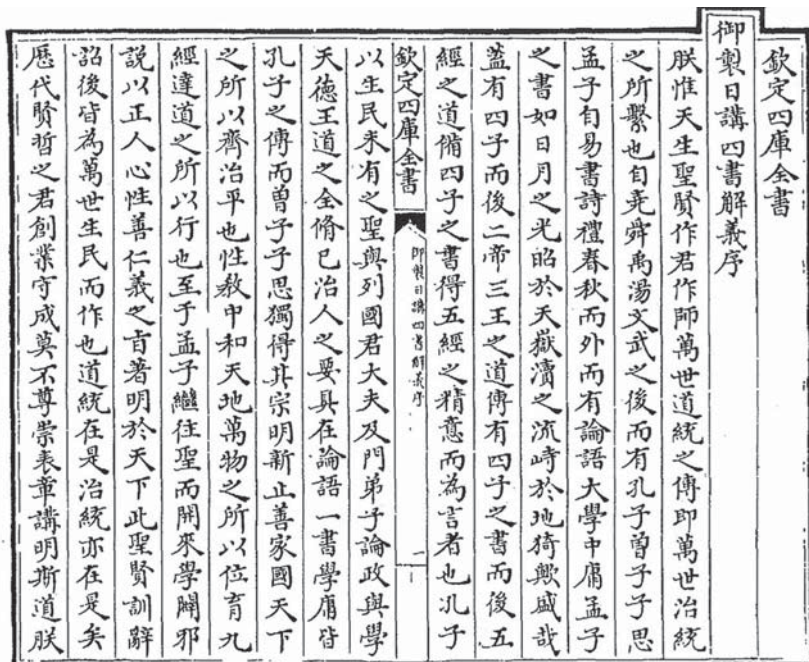 欽定四庫全書
御製日講四書解義序
朕惟天生聖賢作君作師萬世道統之傳即萬世治統
之所繫也自堯舜禹湯文武之後而有孔子曾子子思
孟子自易書詩禮春秋而外而有論語大學中庸孟子
之書如日月之光昭於天嶽瀆之流峙於地猗歟盛哉
蓋有四子而後二帝三王之道傳有四子之書而後五
經之道備四子之書得五經之精意而為言者也孔子
欽定四庫全書
御製日講四書解義序
一
以生民未有之聖與列國君大夫及門弟子論政與學
天德王道之全脩已治人之要具在論語一書學庸皆
孔子之傳而曾子子思獨得其宗明新止善家國天下
之所以齊治平也性教中和天地萬物之所以位育九
經達道之所以行也至于孟子繼往聖而開來學闢邪
說以正人心性善仁義之旨著明於天下此聖賢訓辭
詔後皆為萬世生民而作也道統在是治統亦在是矣
歷代賢哲之君創業守成莫不尊崇表章講明斯道朕